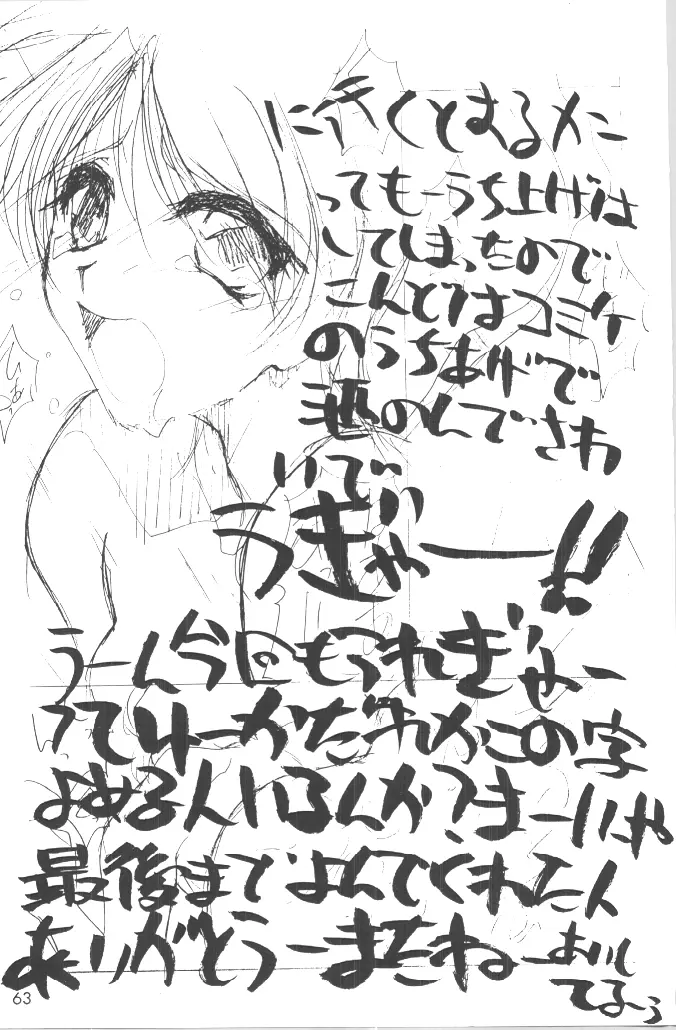 に行くとするメン
ってもーうち上げは
してしまったので
こんどはコミケ
のうちあげで
酒のんでさわ
いでい
うぎゃー!!
うーん今にもつれぎゃー
ってゆーかだれかこの字
よめる人いるんか?まーいいや
最後までよんでくれた人
ありがとうーまたねーあいし
てるーぅ
63